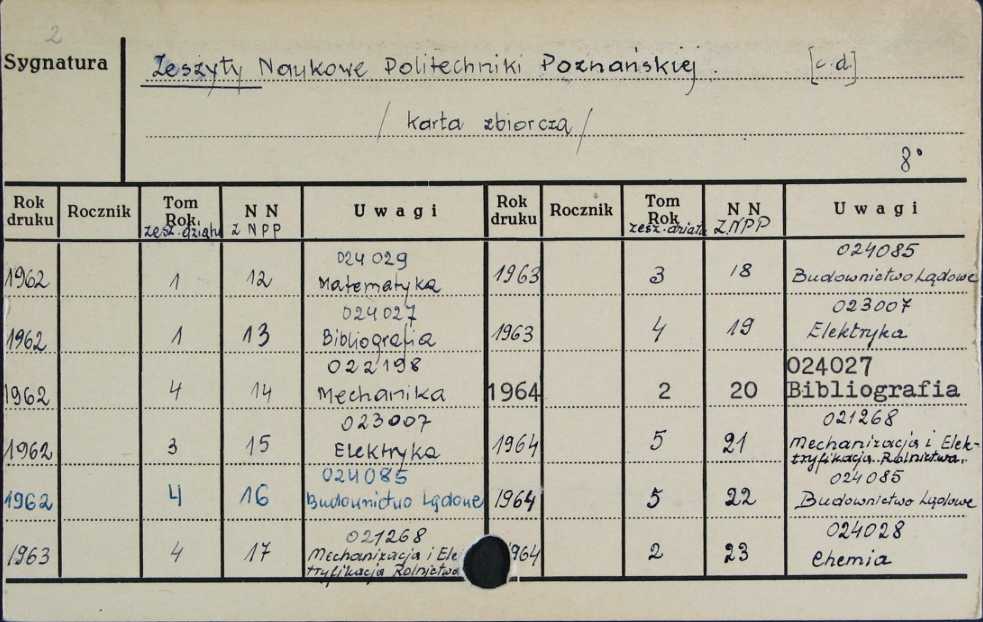 2
Sygnatura
Zeszyty Naukowe Politechniki Poznańskiej. [c.d.]
/ karta zbiorcza /
8°
Rok druku Rocznik Tom Rok zesz. działu NN ZNPP Uwagi Rok druku Rocznik Tom Rok zesz. działu NN ZNPP Uwagi
024029 024085
1962 1 12 Matematyka 1963 3 18 Budownictwo Lądowe
024027 023007
1962 1 13 Bibliografia 1963 4 19 Elektryka
022198 024027
1962 4 14 Mechanika 1964 2 20 Bibliografia
023007 021268
1962 3 15 Elektryka 1964 5 21 Mechanizacja i Elek-
tryfikacja Rolnictwa.
024085 024085
1962 4 16 Budownictwo Lądowe 1964 5 22 Budownictwo Lądowe
021268 024028
1963 4 17 Mechanizacja i Ele 1964 2 23 Chemia
tryfikacja Rolnictwa